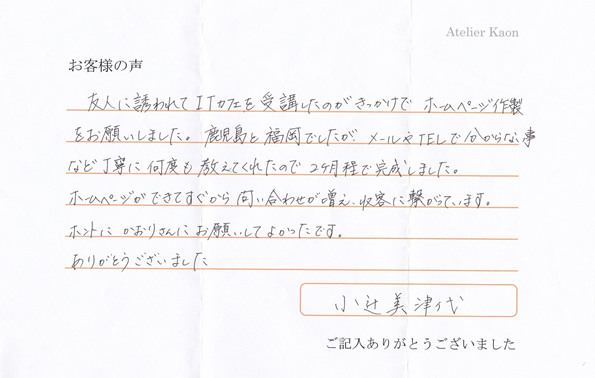 Atelier Kaon
お客様の声
友人に誘われてITカフェを受講したのがきっかけで ホームページ作製
をお願いしました。鹿児島と福岡でしたが、メールやTELで分からない事
など丁寧に何度も教えてくれたので2ヶ月程で完成しました。
ホームページができてすぐから問い合わせが増え、収客に繋がっています。
ホントにかおりさんにお願いしてよかったです。
ありがとうございました
小辻美津代
ご記入ありがとうございました